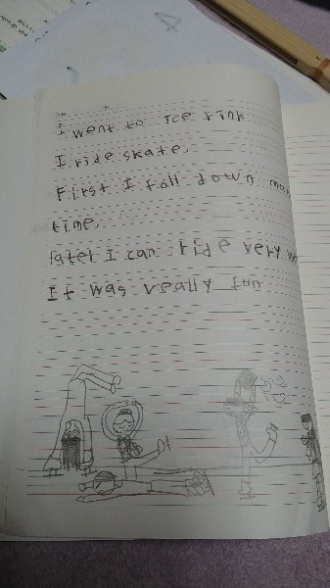 I went to Ice rink
I ride skate.
First I fall down
time.
later I can ride very
It was really fun